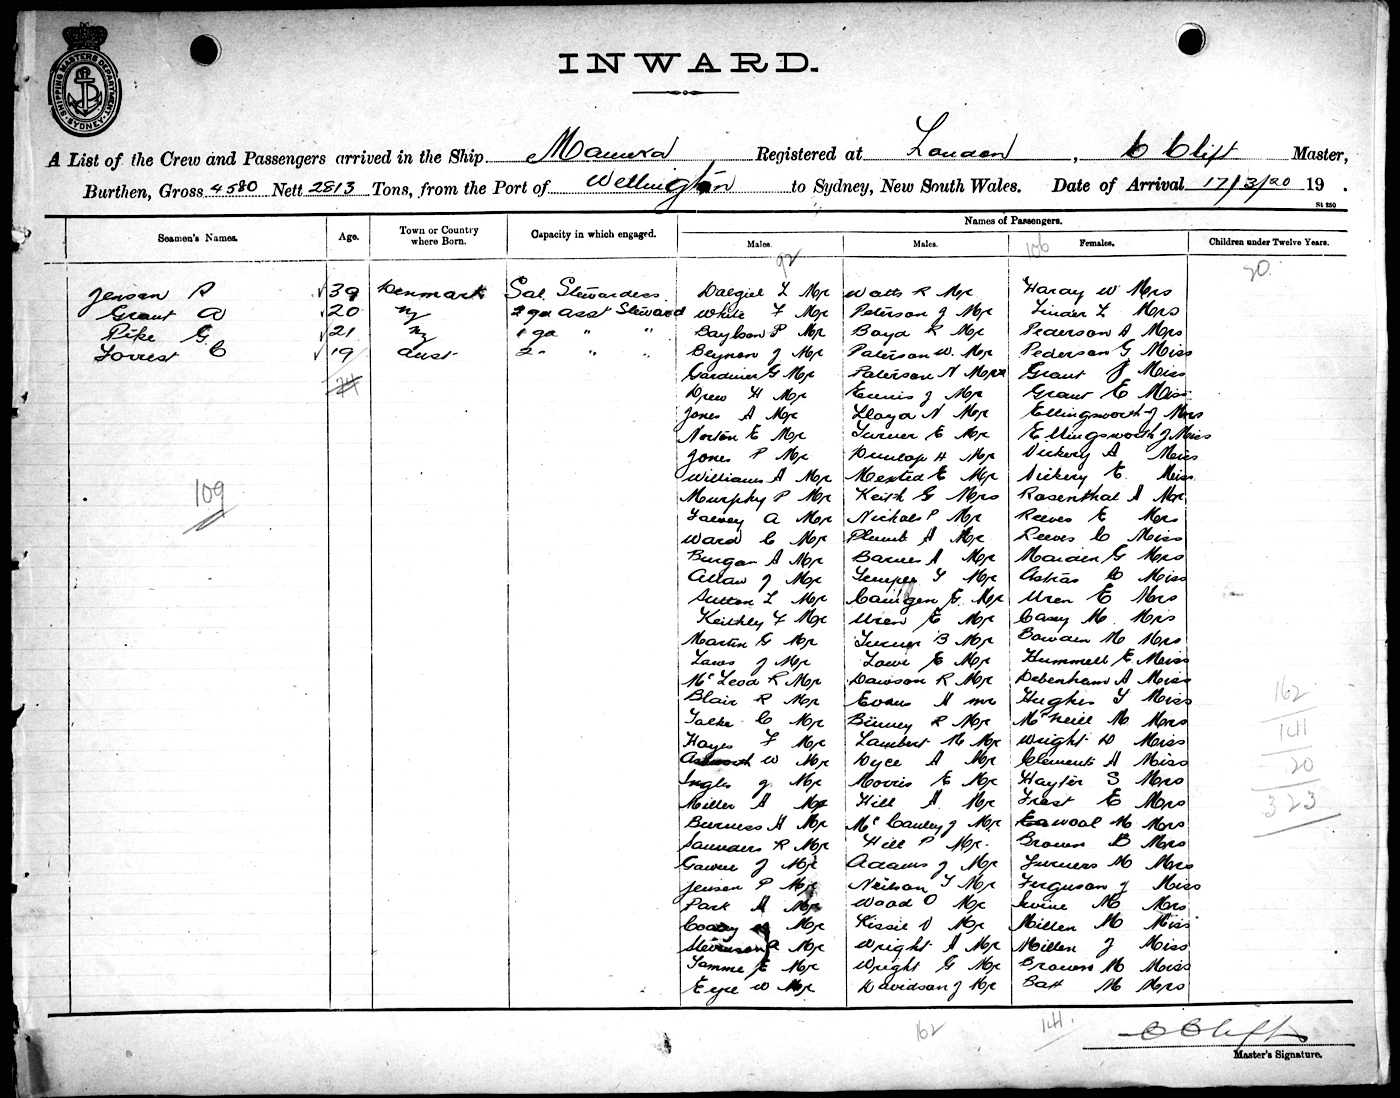 SHIPPING MASTERS DEPARTMENT SYDNEY
INWARD.
A List of the Crew and Passengers arrived in the Ship Manuka Registered at London, C Clift Master,
Burthen, Gross 4580 Nett 2813 Tons, from the Port of Wellington to Sydney, New South Wales. Date of Arrival 17/3/20 19 .
St 250
Names of Passengers.
Seamen's Names. Age. Town or Country where Born. Capacity in which engaged. Males. Males. Females. Children under Twelve Years.
92 106 20
Jensen A 39 Denmark Sal. Stewardess Dalgiel L Mr Watts R Mr Hardy W Mrs
Grant A 20 NZ 2nd Asst Steward White F Mr Peterson J Mr Linder L Mrs
Pike G 21 NZ 1 " " P Mr Boyd R Mr Pederson A Mrs
Forrest C 19 Aust 2 " " Beynon J Mr Paterson W. Mr Pederson G Miss
24 Gardiner G Mr Paterson N Mr Grant J Miss
Drew H Mr Ennis J Mr Grant E Miss
Jones A Mr Lloyd N Mr Ellingsworth J Mrs
Norton E Mr Turner E Mr Ellingsworth J Miss
Jones P Mr Dunlop H Mr Vickery A Miss
Williams A Mr Mexted E Mr Vickery E Miss
109 Murphy P Mr Keith G Mrs Rosenthal A Mr
Falvey A Mr Nichols P Mr Reeves E Mrs
Ward C Mr Plumb A Mr Reeves C Miss
Burgan A Mr Barnes A Mr Maiden G Mrs
Allan J Mr Temper T Mr C Miss
Sutton L Mr E Mr Uren E Mrs
Keithley F Mr Uren E Mr Casey M. Mrs
Martin G Mr Turner B Mr Bowden M Mrs
Laws J Mr Lowe E Mr Hummell E Miss
McLeod R Mr Dawson R Mr Debenham A Miss
Blair R Mr Evans H mr Hughes T Miss 162
C Mr Binney R Mr McNeill M Mrs
Hayes F Mr Lambert M Mr Wright D Miss 141
Ashworth W Mr Dyce A Mr Clements A Miss
Ingles J Mr Morris E Mr Hayter S Mrs 20
Miller A Mr Hill A Mr Frost E Mrs 323
Burness H Mr McCauley J Mr M Mrs
Saunders R Mr Hill P Mr. Brown B Mrs
J Mr Adams J Mr Furness M Mrs
Jensen P Mr Neilson T Mr Ferguson J Miss
Park H Mr Wood O Mr Irvine M Mrs
Mr Kissie V Mr Millen M Miss
Stevenson R Mr Wright A Mr Millen J Miss
E Mr Wright G Mr Brown M Miss
Eyre W Mr Davidson J Mr Batt M Mrs
162 141. C Clift
Master's Signature.